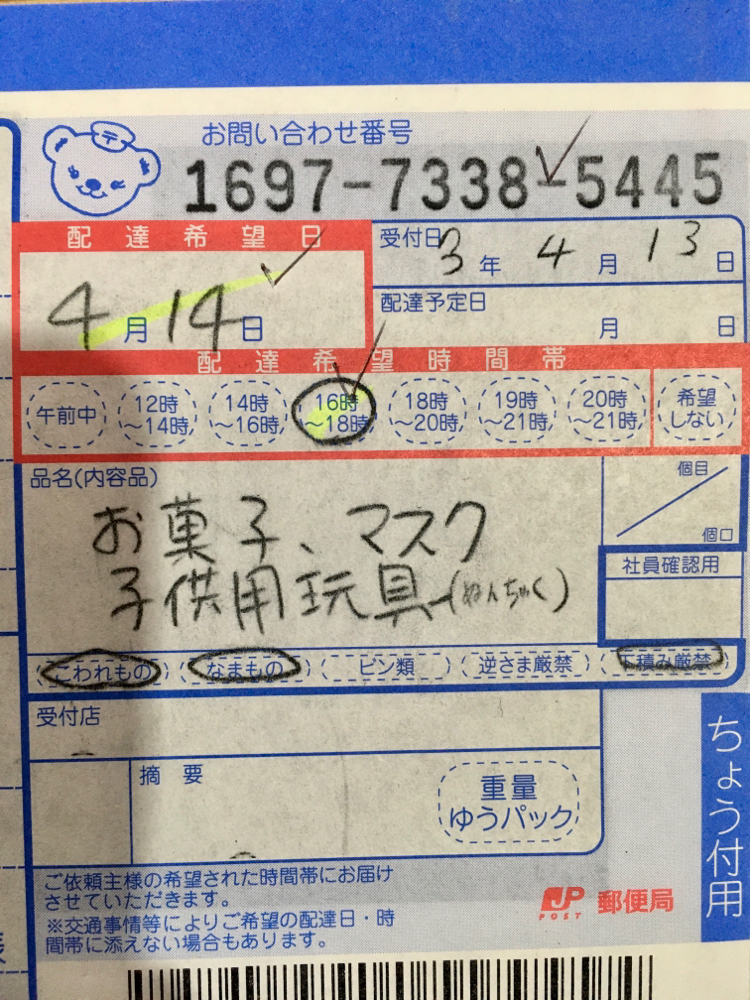 お問い合わせ番号
1697-7338-5445
配達希望日
4月14日
受付日 3年 4月 13日
配達予定日
月 日
配達希望時間帯
午前中 12時～14時 14時～16時 16時～18時 18時～20時 19時～21時 20時～21時 希望しない
品名(内容品)
お菓子、マスク
子供用玩具(ぬんちゃく)
個目
個口
社員確認用
こわれもの なまもの ビン類 逆さま厳禁 下積み厳禁
受付店
摘要
重量
ゆうパック
ちょう付用
ご依頼主様の希望された時間帯にお届け
させていただきます。
※交通事情等によりご希望の配達日・時
間帯に添えない場合もあります。
JP POST 郵便局